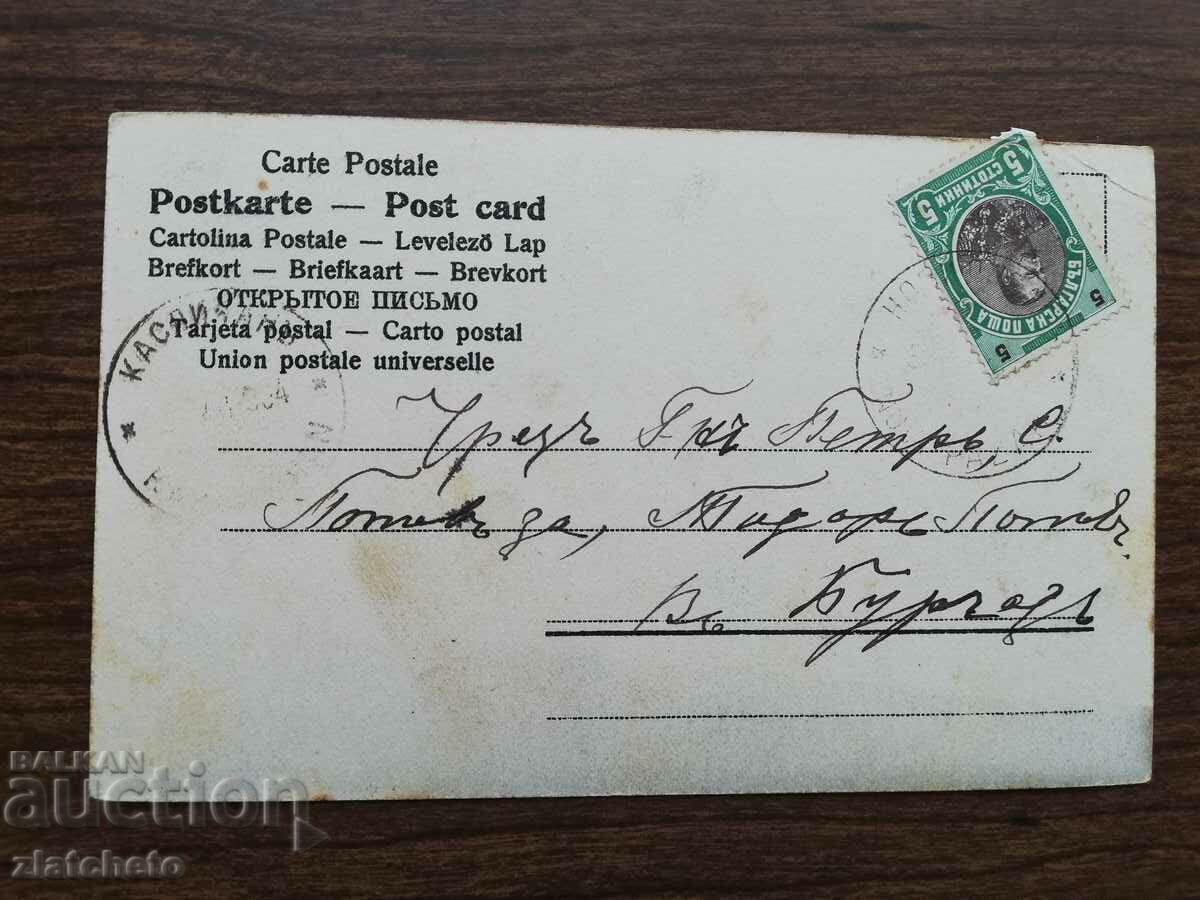 Carte Postale
Postkarte — Post card
Cartolina Postale — Levelező Lap
Brefkort — Briefkaart — Brevkort
ОТКРЫТОЕ ПИСЬМО
Tarjeta postal — Carto postal
Union postale universelle
5 СТОТИНКИ 5
БЪЛГАРСКА ПОЩА
5 5
Чрезъ Г-нъ Петръ, С.
Потевъ за, Тодоръ Потевъ.
Въ Бургадъ
BALKAN
auction
zlatcheto